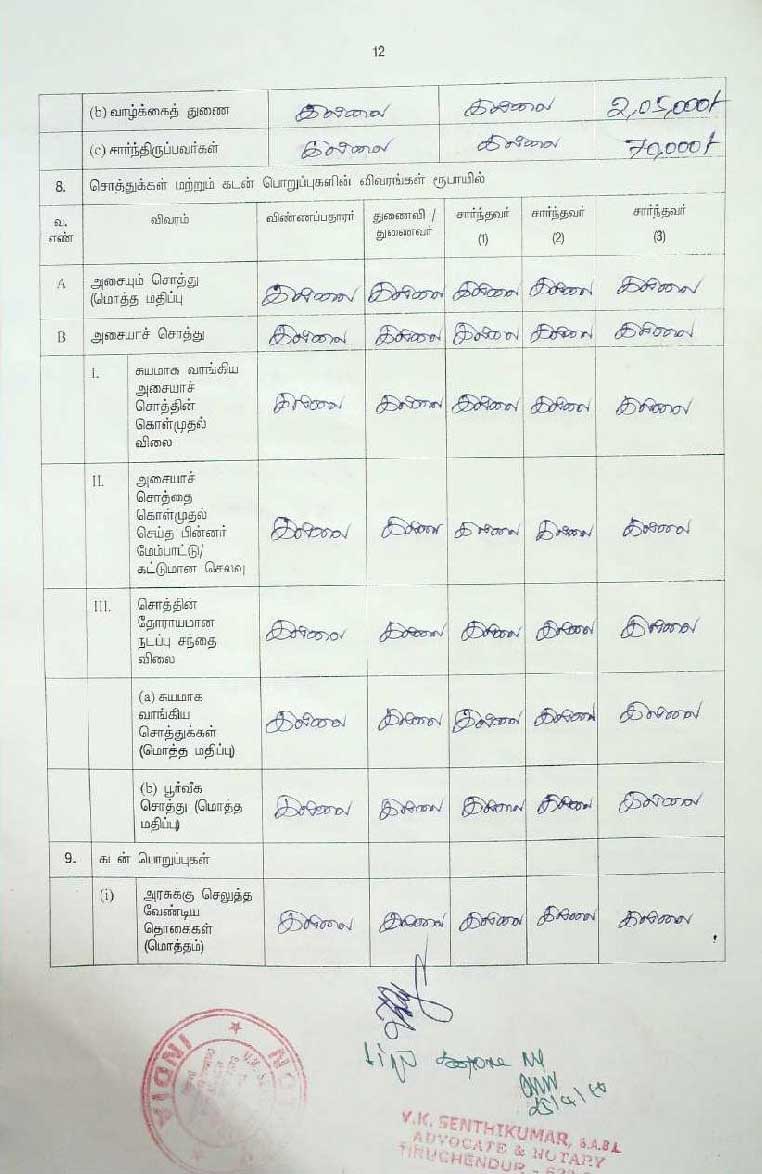 12
(b) வாழ்க்கைத் துணை இல்லை இல்லை 2,05,000/-
(c) சார்ந்திருப்பவர்கள் இல்லை இல்லை 70,000/-
8. சொத்துக்கள் மற்றும் கடன் பொறுப்புகளின் விவரங்கள் ரூபாயில்
வ. எண் விவரம் விண்ணப்பதாரர் துணைவி / துணைவர் சார்ந்தவர் (1) சார்ந்தவர் (2) சார்ந்தவர் (3)
A அசையும் சொத்து
(மொத்த மதிப்பு இல்லை இல்லை இல்லை இல்லை இல்லை
B அசையாச் சொத்து இல்லை இல்லை இல்லை இல்லை இல்லை
I. சுயமாக வாங்கிய
அசையாச்
சொத்தின்
கொள்முதல்
விலை
இல்லை இல்லை இல்லை இல்லை இல்லை
II. அசையாச்
சொத்தை
கொள்முதல்
செய்த பின்னர்
மேம்பாட்டு/
கட்டுமான செலவு
இல்லை இல்லை இல்லை இல்லை இல்லை
III. சொத்தின்
தோராயமான
நடப்பு சந்தை
விலை
இல்லை இல்லை இல்லை இல்லை இல்லை
(a) சுயமாக
வாங்கிய
சொத்துக்கள்
(மொத்த மதிப்பு)
இல்லை இல்லை இல்லை இல்லை இல்லை
(b) பூர்வீக
சொத்து (மொத்த
மதிப்பு)
இல்லை இல்லை இல்லை இல்லை இல்லை
9. கடன் பொறுப்புகள்
(i) அரசுக்கு செலுத்த
வேண்டிய
தொகைகள்
(மொத்தம்)
இல்லை இல்லை இல்லை இல்லை இல்லை
INDIA
V.K. SENTHIKUMAR, B.A.B.L
ADVOCATE & NOTARY
TIRUCHENDUR